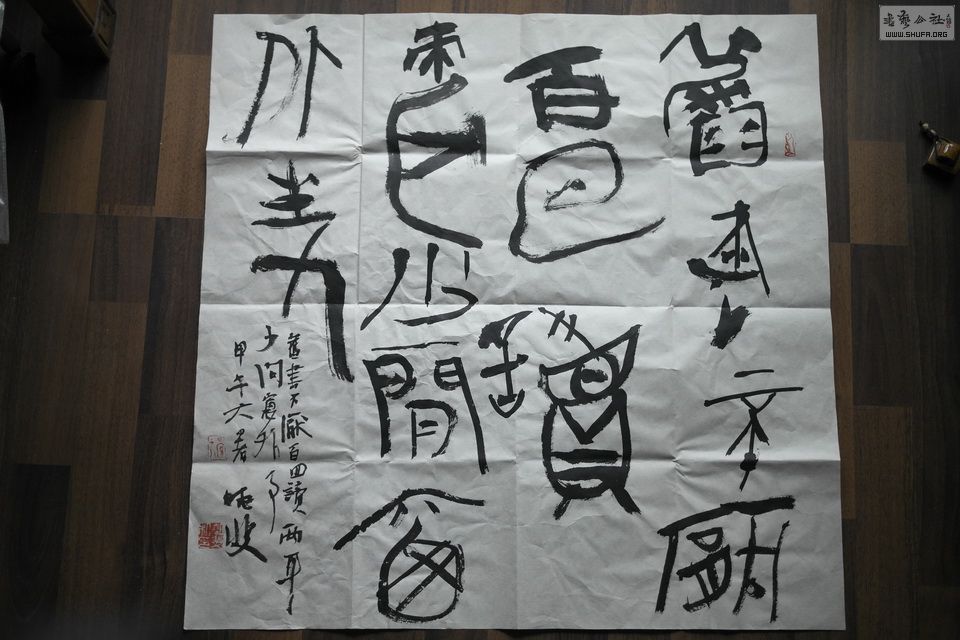 舊書不厭
百回讀
兩耳少聞窗
外事
舊書不厭百回讀兩耳
少问窗外事
甲午大暑
書藝公社
WWW.SHUFA.ORG